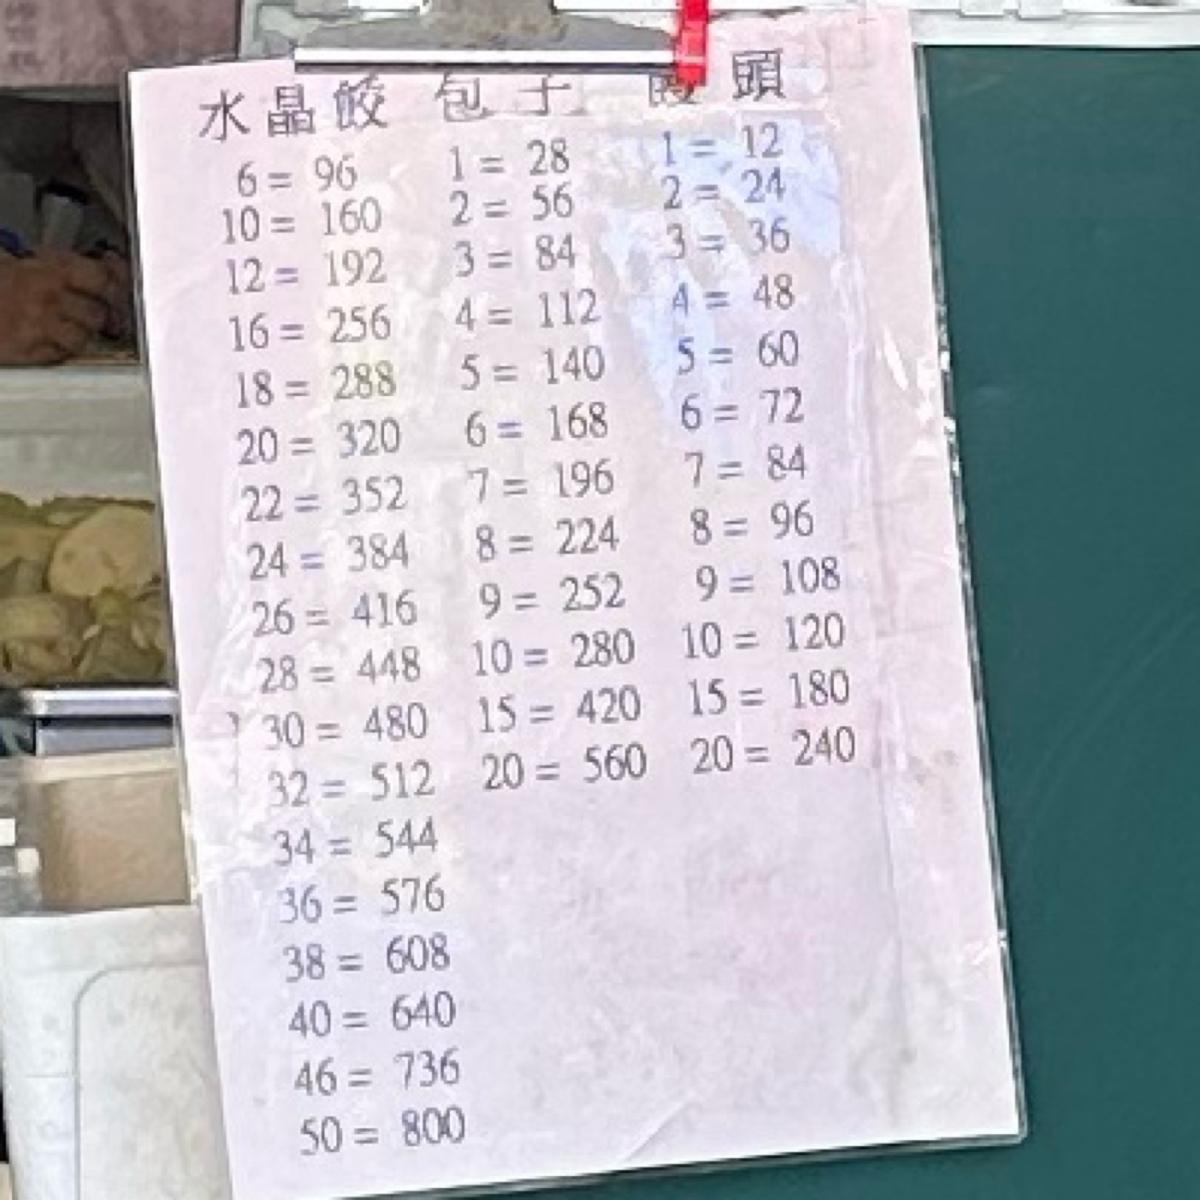 水晶餃 包子 饅頭
6 = 96 1 = 28 1 = 12
10 = 160 2 = 56 2 = 24
12 = 192 3 = 84 3 = 36
16 = 256 4 = 112 4 = 48
18 = 288 5 = 140 5 = 60
20 = 320 6 = 168 6 = 72
22 = 352 7 = 196 7 = 84
24 = 384 8 = 224 8 = 96
26 = 416 9 = 252 9 = 108
28 = 448 10 = 280 10 = 120
30 = 480 15 = 420 15 = 180
32 = 512 20 = 560 20 = 240
34 = 544
36 = 576
38 = 608
40 = 640
46 = 736
50 = 800